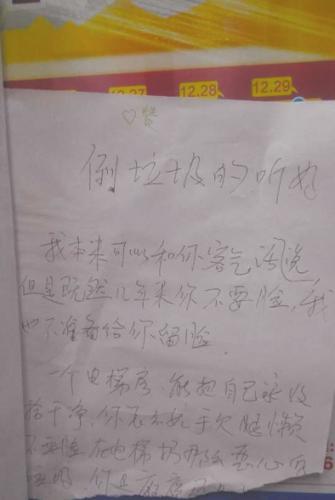 12.27
12.28
12.29
♡赞
倒垃圾的听好
我本来可以和你客气话说
但是既然几年来你不要脸,我
也不准备给你留脸.
一个电梯房,能把自己家收
拾干净,你
手欠腿懒
不要脸,在电梯扔那么恶心